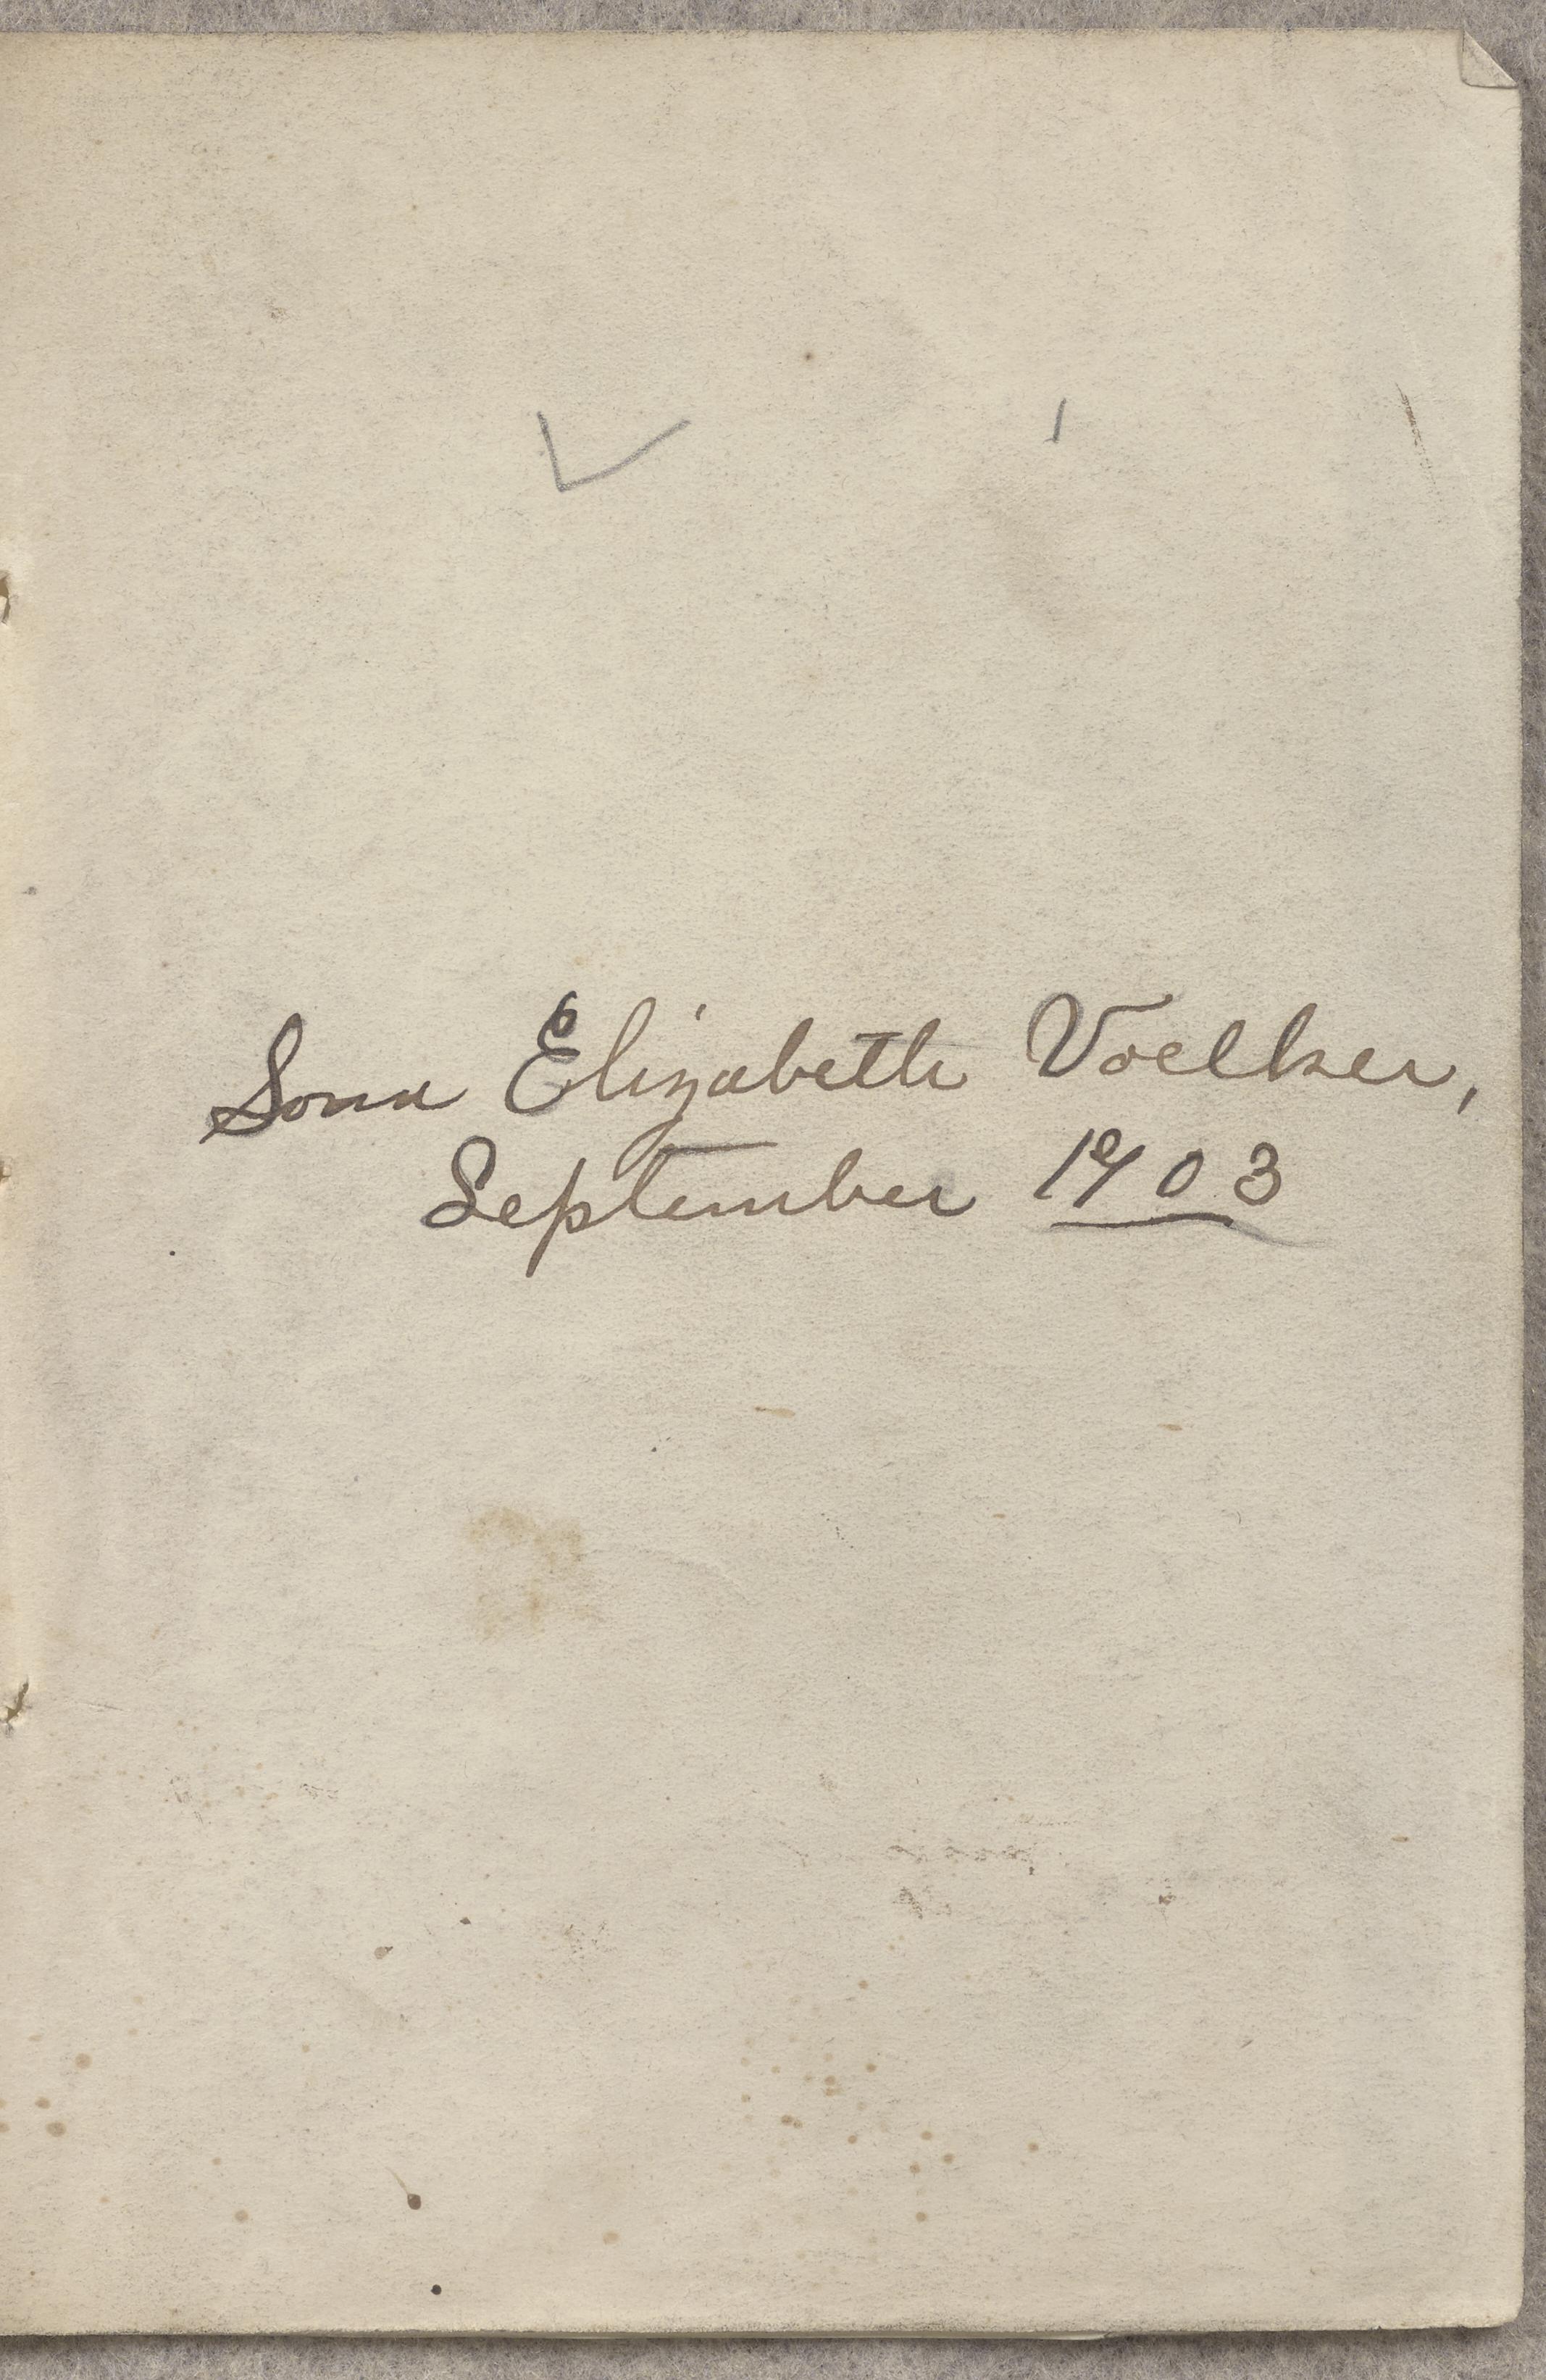 Elizabeth Voelker,
September 1903